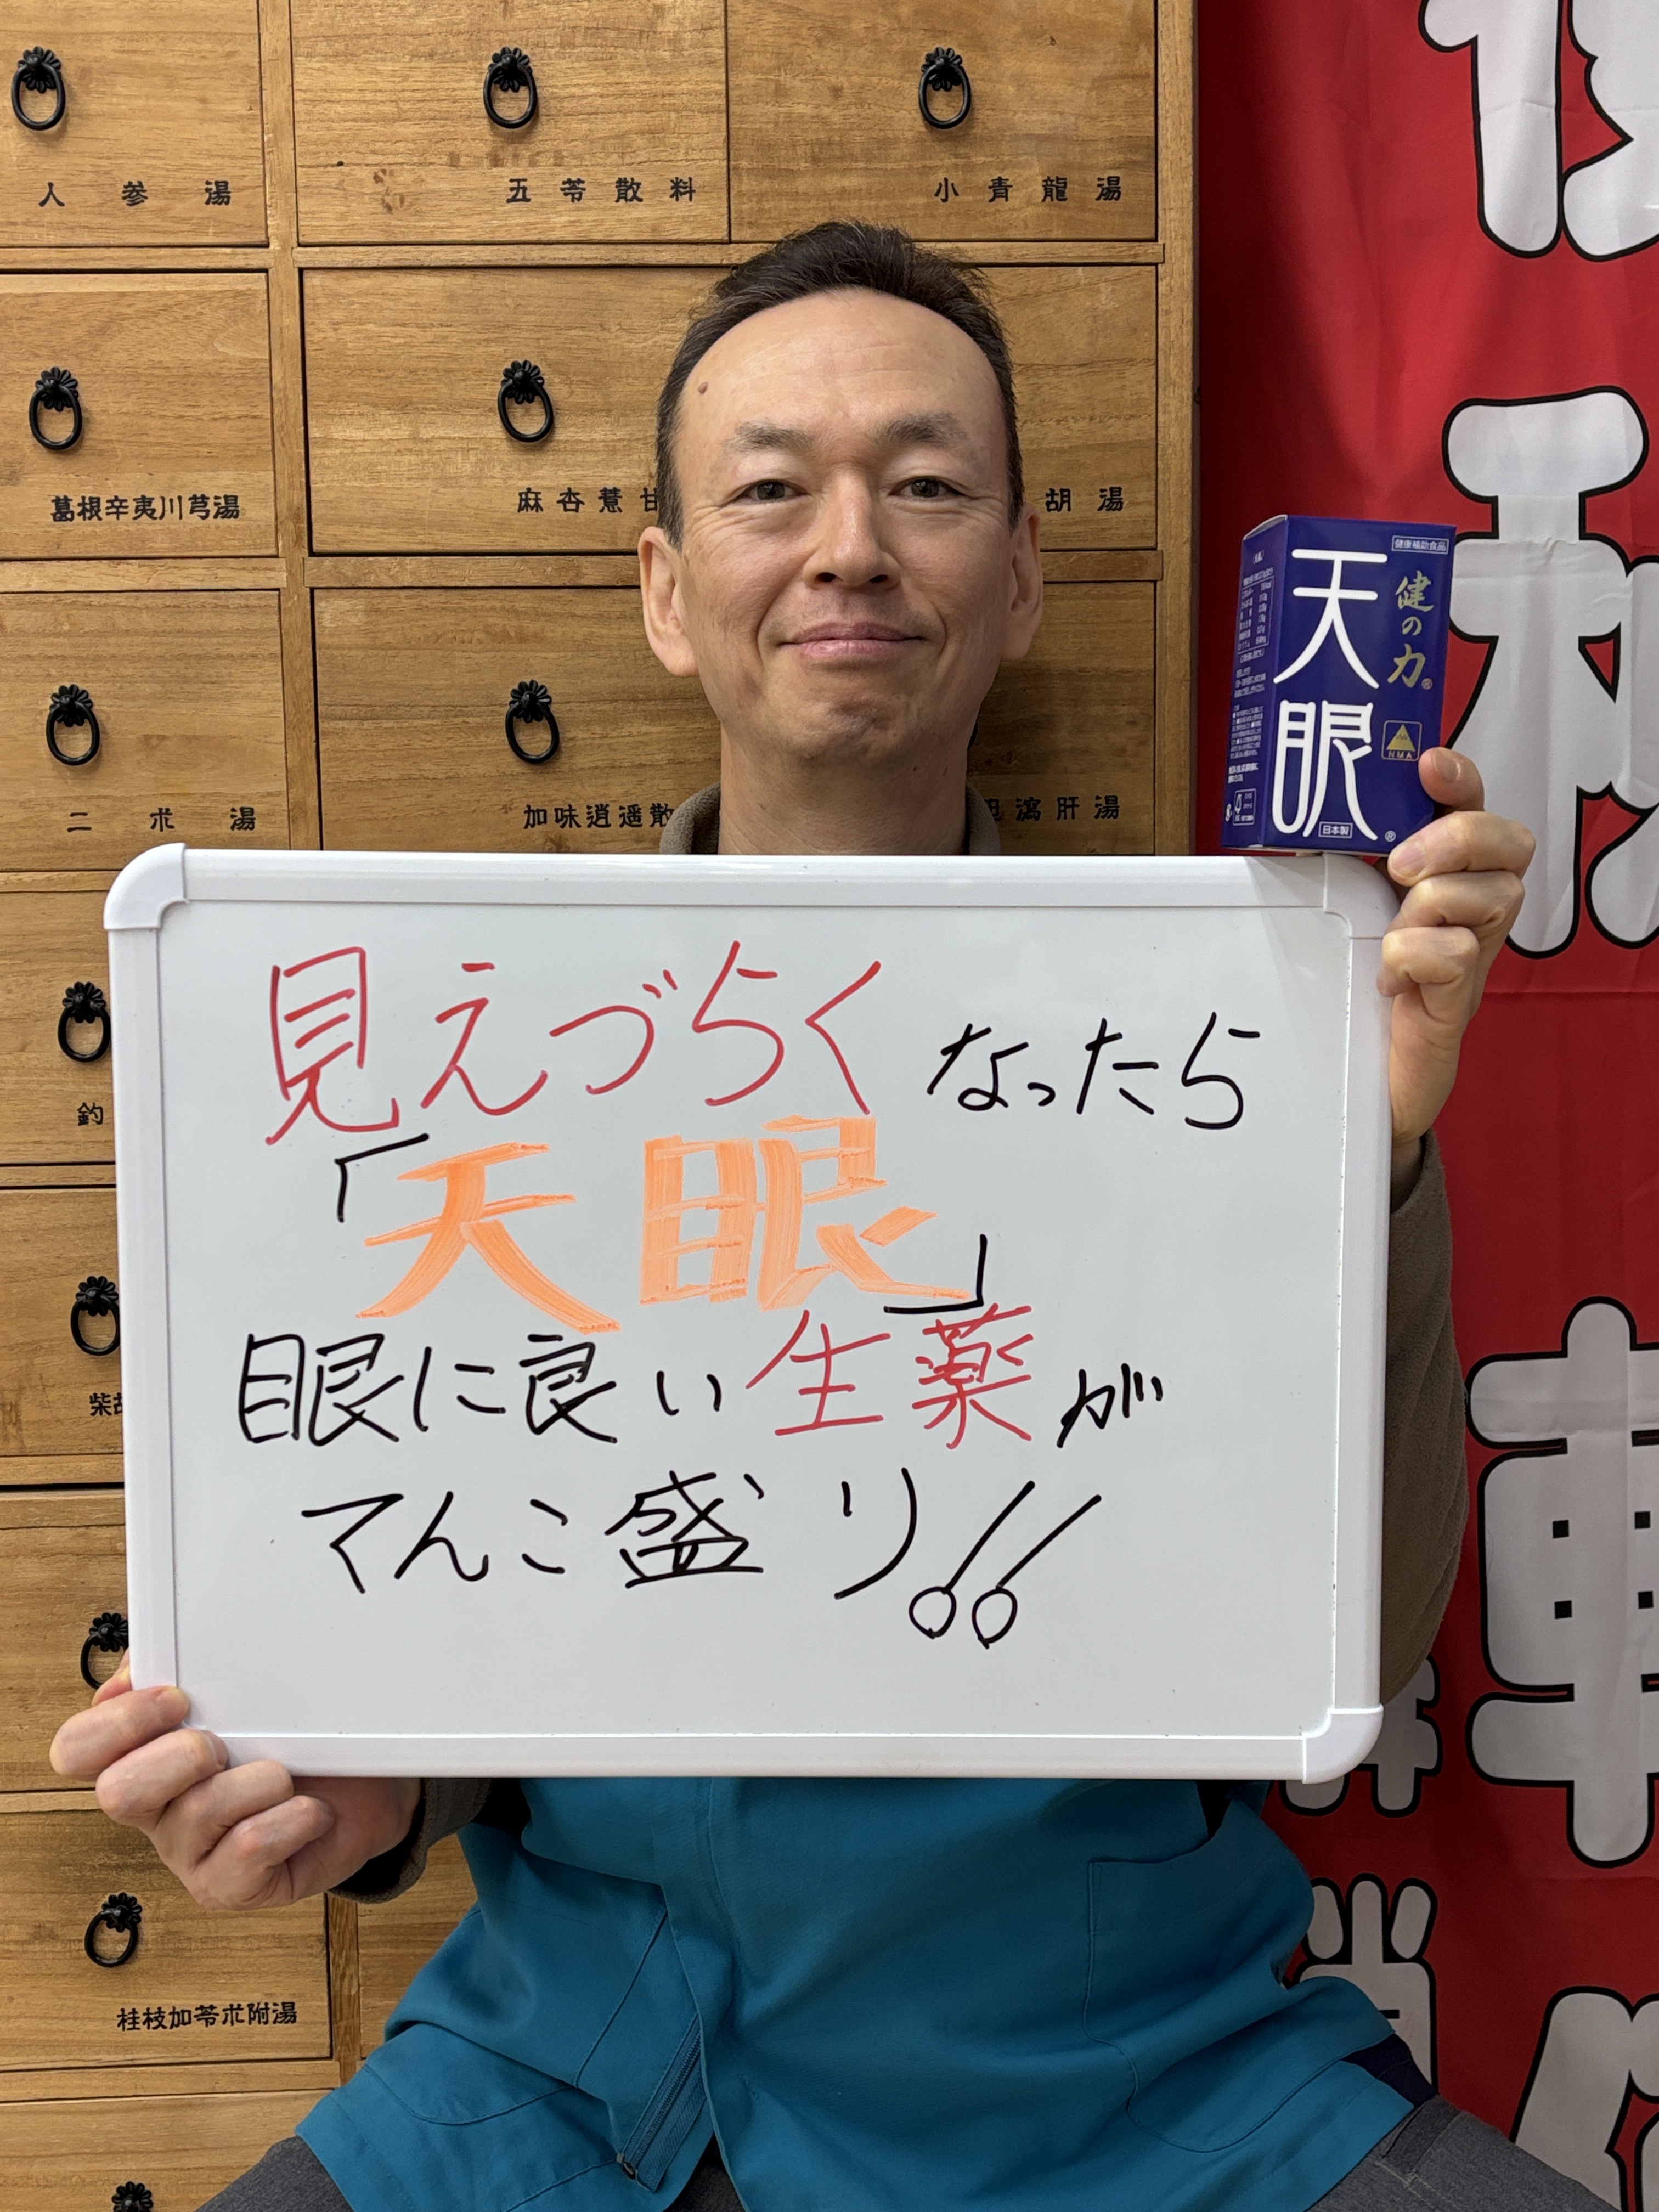 人参湯
五苓散料
小青龍湯
葛根辛夷川芎湯
麻杏薏甘
胡湯
二朮湯
加味逍遥散
胆瀉肝湯
釣
柴胡
桂枝加苓朮附湯
健康補助食品
健の力®
天眼®
NMA
日本製
見えづらくなったら
「天眼」
眼に良い生薬が
てんこ盛り!!